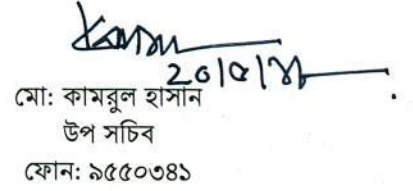 মো: কামরুল হাসান
উপ সচিব
ফোন: ৯৫৫০৩৪১